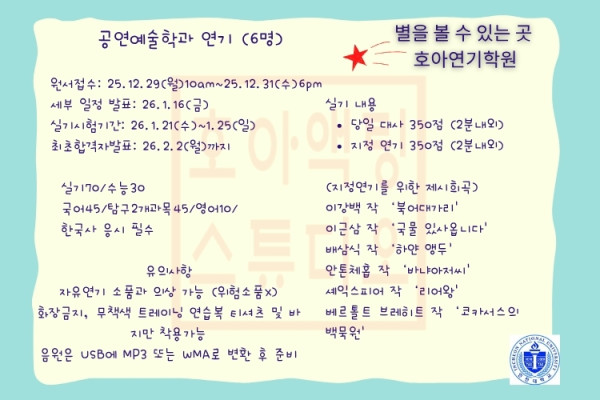 공연예술학과 연기 (6명)
별을 볼 수 있는 곳
호아연기학원
원서접수: 25.12.29(월)10am~25.12.31(수)6pm
세부 일정 발표: 26.1.16(금)
실기시험기간: 26.1.21(수)~1.25(일)
최초합격자발표: 26.2.2(월)까지
실기 내용
• 당일 대사 350점 (2분내외)
• 지정 연기 350점 (2분내외)
실기70/수능30
국어45/탐구2개과목45/영어10/
한국사 응시 필수
(지정연기를 위한 제시희곡)
이강백 작 '북어대가리'
이근삼 작 '국물 있사옵니다'
배삼식 작 '하얀 앵두'
안톤체홉 작 '바냐아저씨'
셰익스피어 작 '리어왕'
베르톨트 브레히트 작 '코카서스의
백묵원'
유의사항
자유연기 소품과 의상 가능 (위험소품X)
화장금지, 무채색 트레이닝 연습복 티셔츠 및 바
지만 착용가능
음원은 USB에 MP3 또는 WMA로 변환 후 준비
호아액팅
스튜디오
INCHEON NATIONAL UNIVERSITY
인천대학교